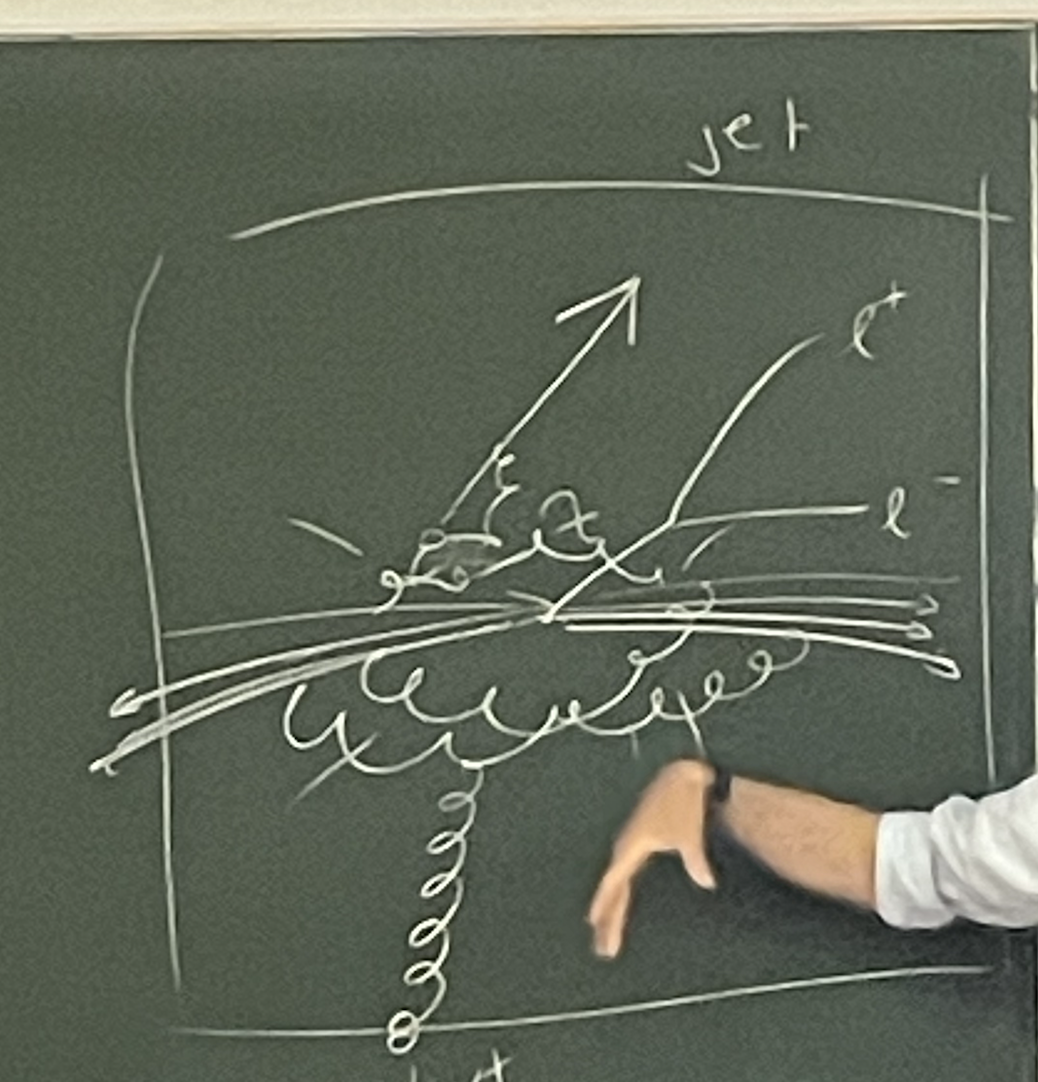 jet
l⁺
l⁻